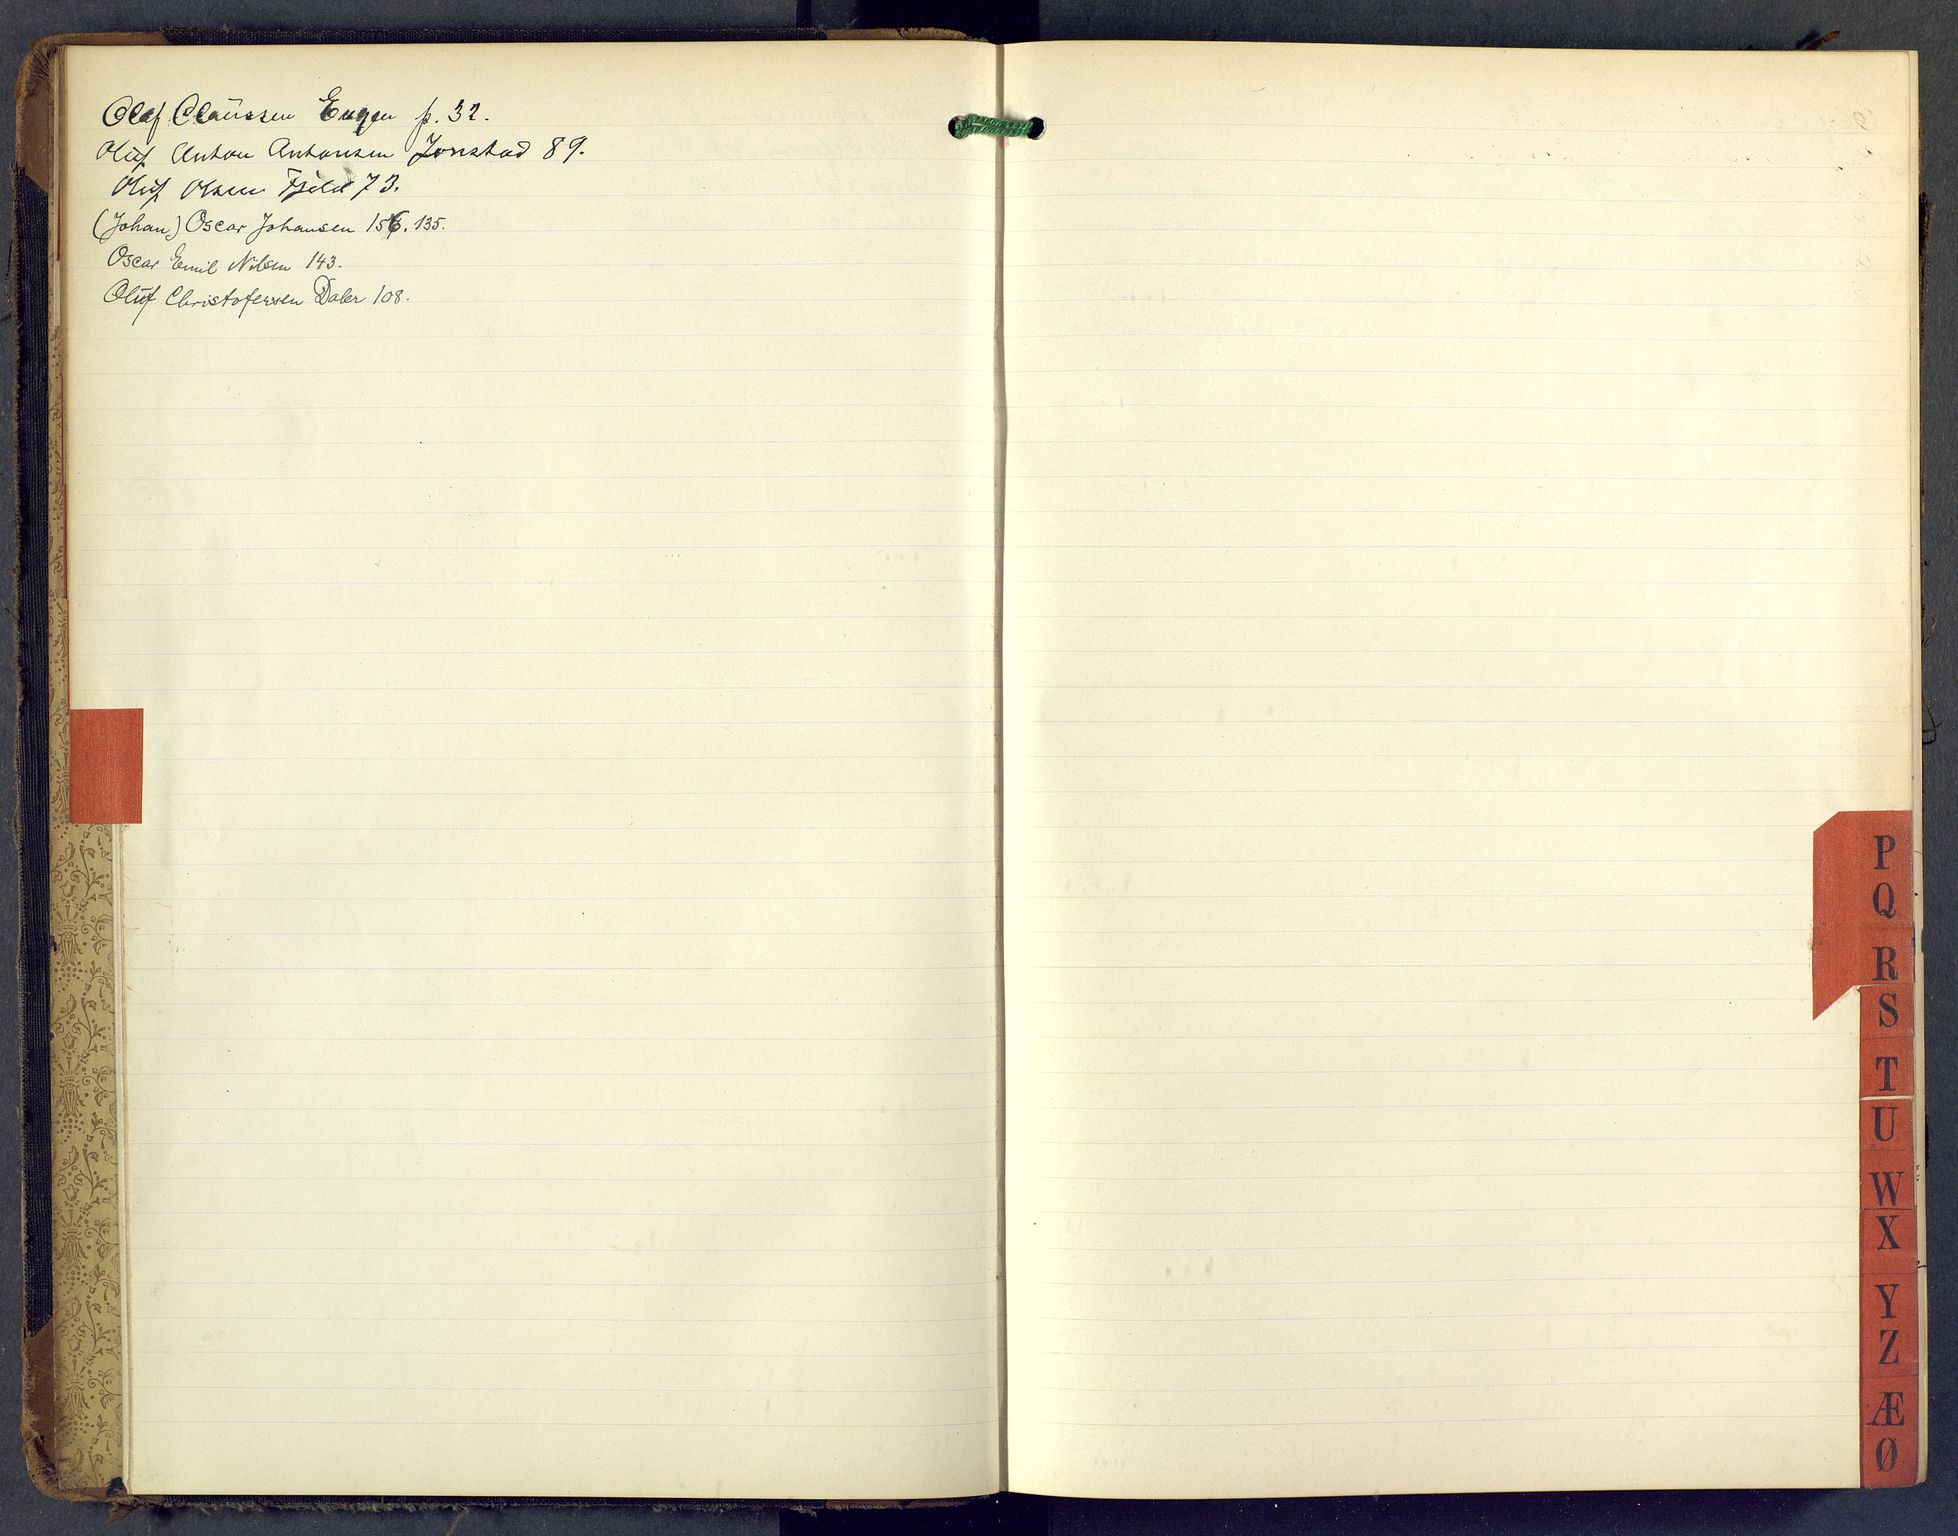 Olaf Claussen Eugen p. 32.
Oluf Anton Antonsen Jonstad 89.
Oluf Olsen Fjeld 73.
(Johan) Oscar Johansen 156. 135.
Oscar Emil Nilsen 143.
Oluf Christofersen Daler 108.
P
Q
R
S
T
U
W
X
Y
Z
Æ
Ø